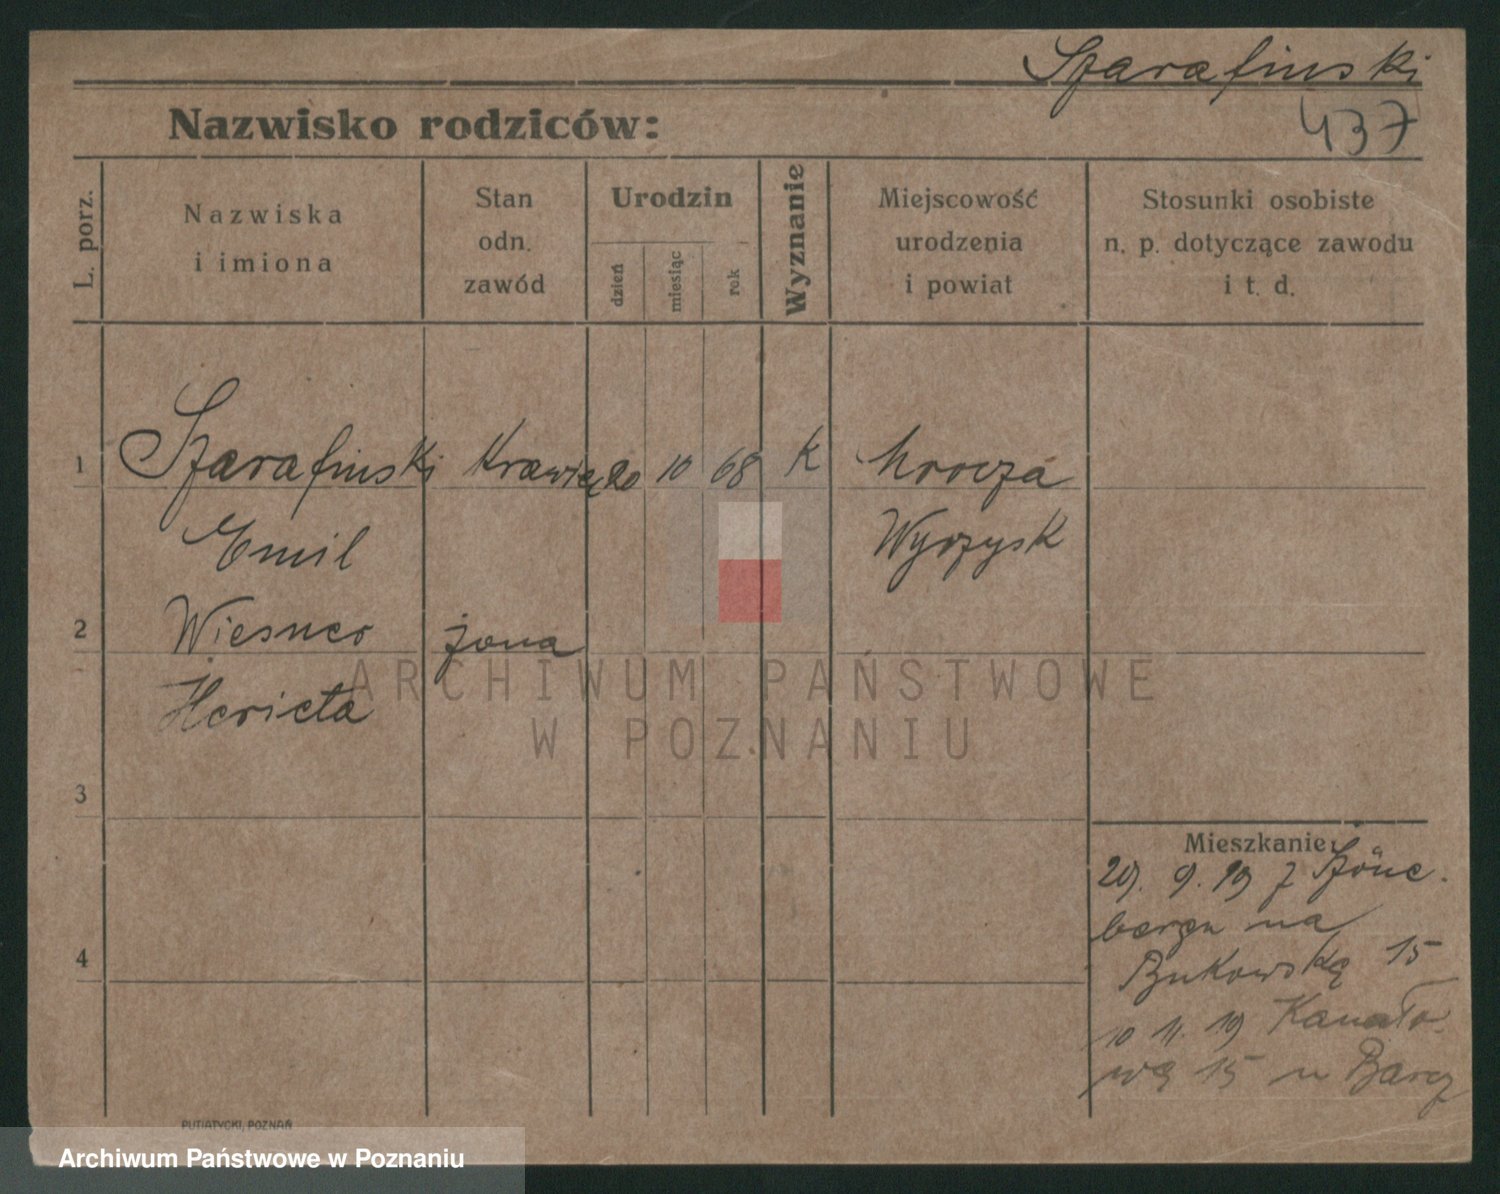 Szarafinski
437
Nazwisko rodziców:
L. porz.
Nazwiska
i imiona
Stan
odn.
zawód
Urodzin
dzień
miesiąc
rok
Wyznanie
Miejscowość
urodzenia
i powiat
Stosunki osobiste
n. p. dotyczące zawodu
i t. d.
1 Szarafinski Krawiec 20 10 68 K Mrocza
Emil Wyrzysk
2 Wiesner żona
Herieta
3
4
Mieszkanie:
29. 9. 19 z Szöne-
bergu na
Bukowską 15
10 11. 19 Kanało-
wą 15 u
PUTIATYCKI, POZNAŃ
ARCHIWUM PAŃSTWOWE
W POZNANIU
Archiwum Państwowe w Poznaniu